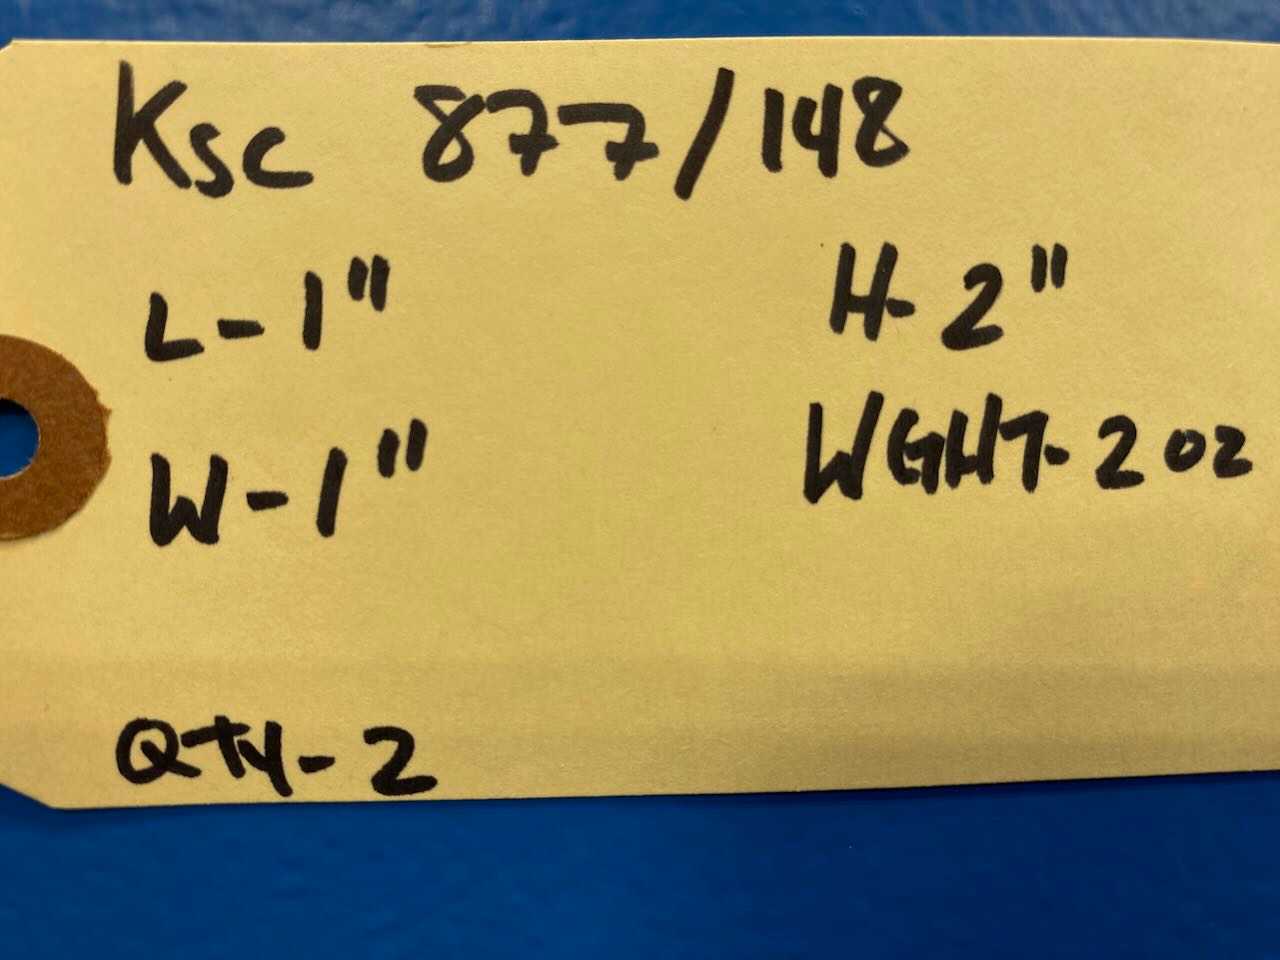 Ksc 877/148
L-1" H-2"
W-1" WGHT-2oz
QTY-2